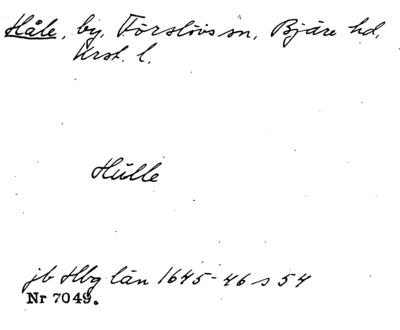 Håle, by, Förslövs sn, Bjäre hd,
Krst. l.
Hülle
jb Hbg län 1645-46 s 54
Nr 7049.